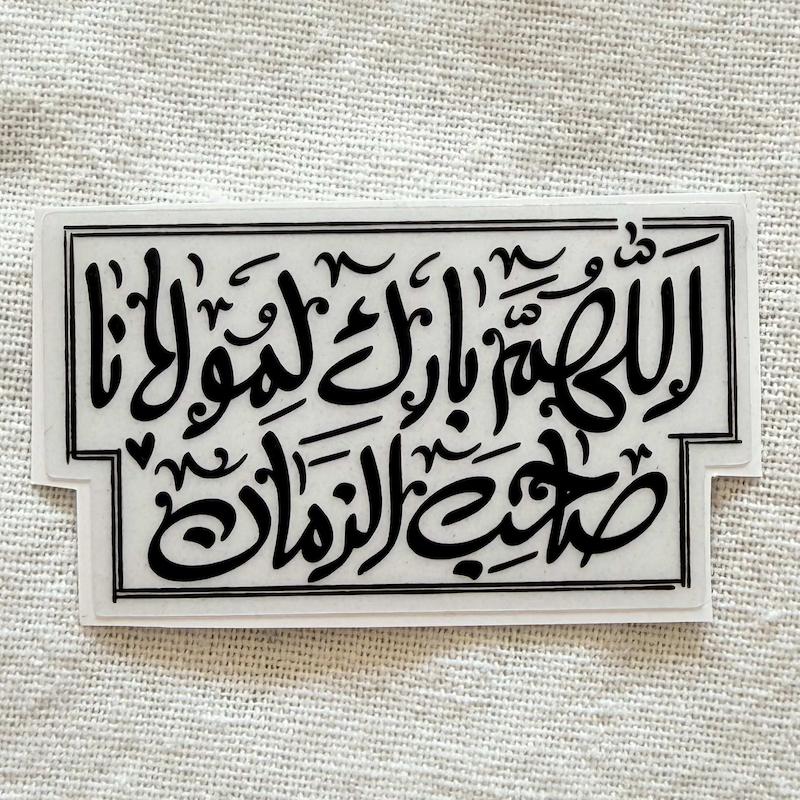 اَللّٰهُمَّ بَارِك لِمَوْلَانَا
صَاحِبِ الزَّمَان